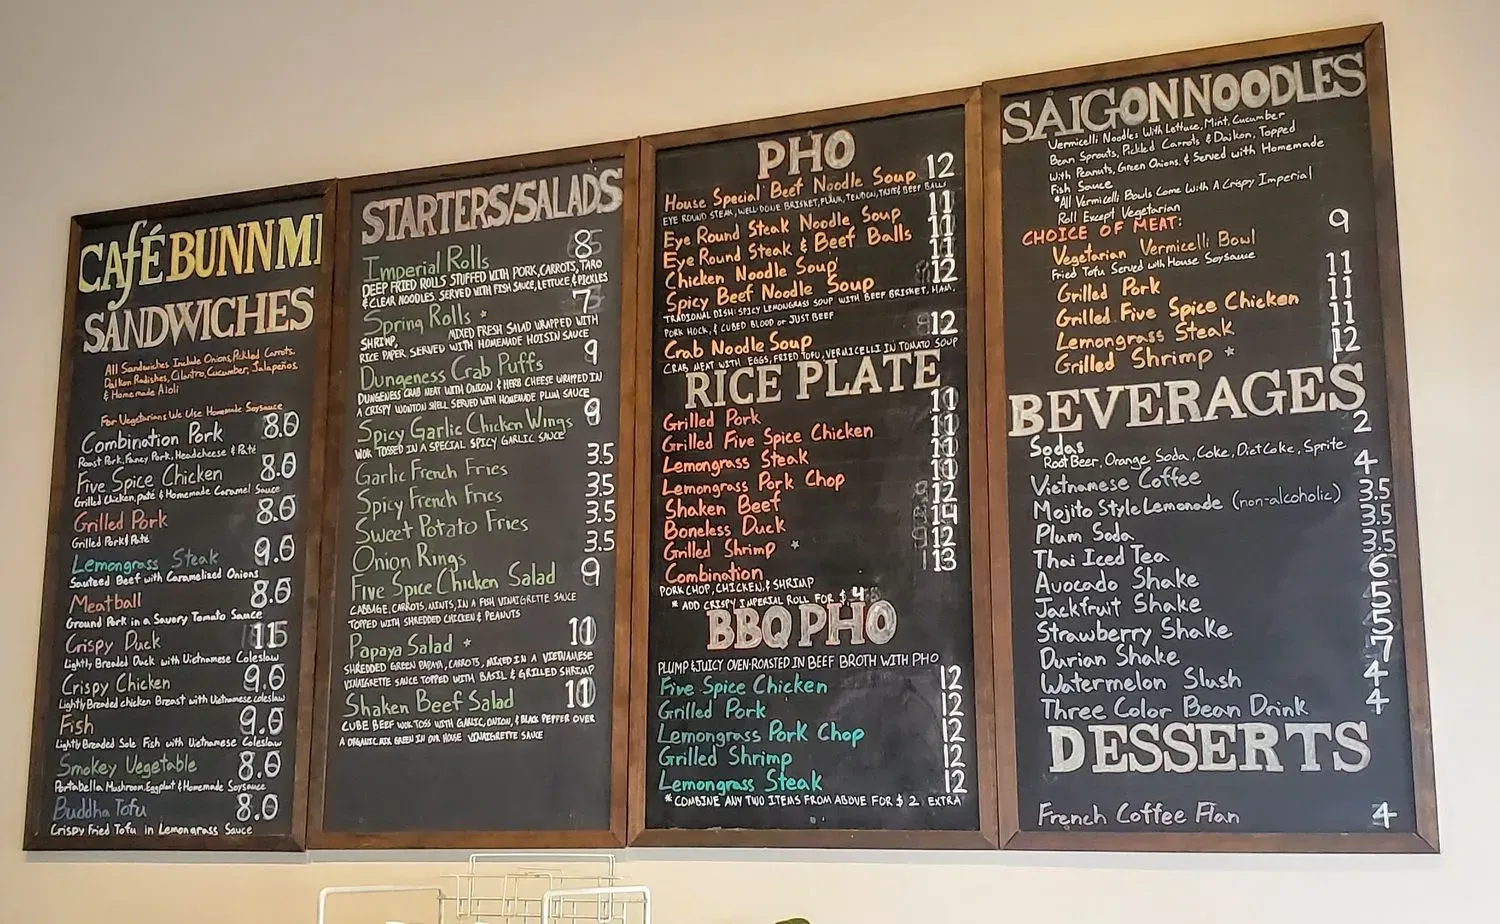 CAFÉ BUNN MI
SANDWICHES
All Sandwiches Include Onions, Pickled Carrots,
Daikon Radishes, Cilantro, Cucumber, Jalapeños,
& Homemade Aioli
For Vegetarians We Use Homemade Soysauce
Combination Pork 8.0
Roast Pork, Fancy Pork, Headcheese & Paté
Five Spice Chicken 8.0
Grilled Chicken, paté & Homemade Caramel Sauce
Grilled Pork 8.0
Grilled Pork & Paté
Lemongrass Steak 9.0
Sauteed Beef with Caramelized Onions
Meatball 8.0
Ground Pork in a Savory Tomato Sauce
Crispy Duck 11.5
Lightly Breaded Duck with Vietnamese Coleslaw
Crispy Chicken 9.0
Lightly Breaded chicken Breast with Vietnamese coleslaw
Fish 9.0
Lightly Breaded Sole Fish with Vietnamese Coleslaw
Smokey Vegetable 8.0
Portabella Mushroom, Eggplant & Homemade Soysauce
Buddha Tofu 8.0
Crispy Fried Tofu in Lemongrass Sauce
STARTERS/SALADS
Imperial Rolls 8
DEEP FRIED ROLLS STUFFED WITH PORK, CARROTS, TARO
& CLEAR NOODLES. SERVED WITH FISH SAUCE, LETTUCE, & PICKLES
Spring Rolls * 7
SHRIMP, MIXED FRESH SALAD WRAPPED WITH
RICE PAPER SERVED WITH HOMEMADE HOISIN SAUCE
Dungeness Crab Puffs 9
DUNGENESS CRAB MEAT WITH ONION & HERB CHEESE WRAPPED IN
A CRISPY WONTON SHELL SERVED WITH HOMEMADE PLUM SAUCE
Spicy Garlic Chicken Wings 9
WOK TOSSED IN A SPECIAL SPICY GARLIC SAUCE
Garlic French Fries 3.5
Spicy French Fries 3.5
Sweet Potato Fries 3.5
Onion Rings 3.5
Five Spice Chicken Salad 9
CABBAGE, CARROTS, MINTS, IN A FISH VINAIGRETTE SAUCE
TOPPED WITH SHREDDED CHICKEN & PEANUTS
Papaya Salad * 10
SHREDDED GREEN PAPAYA, CARROTS, MIXED IN A VIETNAMESE
VINAIGRETTE SAUCE TOPPED WITH BASIL & GRILLED SHRIMP
Shaken Beef Salad 10
CUBE BEEF WOK TOSS WITH GARLIC, ONION, & BLACK PEPPER OVER
A ORGANIC MIX GREEN IN OUR HOUSE VINAIGRETTE SAUCE
PHO
House Special Beef Noodle Soup 12
EYE ROUND STEAK, WELL DONE BRISKET, FLANK, TENDON, TRIPE & BEEF BALLS
Eye Round Steak Noodle Soup 11
Eye Round Steak & Beef Balls 11
Chicken Noodle Soup 11
Spicy Beef Noodle Soup 12
TRADIONAL DISH: SPICY LEMONGRASS SOUP WITH BEEF BRISKET, HAM,
PORK HOCK, & CUBED BLOOD OR JUST BEEF
Crab Noodle Soup 12
CRAB MEAT WITH EGGS, FRIED TOFU, VERMICELLI IN TOMATO SOUP
RICE PLATE
Grilled Pork 11
Grilled Five Spice Chicken 11
Lemongrass Steak 11
Lemongrass Pork Chop 11
Shaken Beef 12
Boneless Duck 14
Grilled Shrimp * 12
Combination 13
PORK CHOP, CHICKEN, & SHRIMP
* ADD CRISPY IMPERIAL ROLL FOR $ 4
BBQ PHO
PLUMP & JUICY OVEN-ROASTED IN BEEF BROTH WITH PHO
Five Spice Chicken 12
Grilled Pork 12
Lemongrass Pork Chop 12
Grilled Shrimp 12
Lemongrass Steak 12
* COMBINE ANY TWO ITEMS FROM ABOVE FOR $ 2 EXTRA
SAIGON NOODLES
Vermicelli Noodles With Lettuce, Mint, Cucumber
Bean Sprouts, Pickled Carrots & Daikon, Topped
with Peanuts, Green Onions, & Served with Homemade
Fish Sauce
*All Vermicelli Bowls Come With A Crispy Imperial
Roll Except Vegetarian
CHOICE OF MEAT:
Vegetarian Vermicelli Bowl 9
Fried Tofu Served with House Soysauce
Grilled Pork 11
Grilled Five Spice Chicken 11
Lemongrass Steak 11
Grilled Shrimp * 12
BEVERAGES
Sodas 2
Root Beer, Orange Soda, Coke, Diet Coke, Sprite
Vietnamese Coffee 4
Mojito Style Lemonade (non-alcoholic) 3.5
Plum Soda 3.5
Thai Iced Tea 3.5
Avocado Shake 6
Jackfruit Shake 5
Strawberry Shake 5
Durian Shake 7
Watermelon Slush 4
Three Color Bean Drink 4
DESSERTS
French Coffee Flan 4